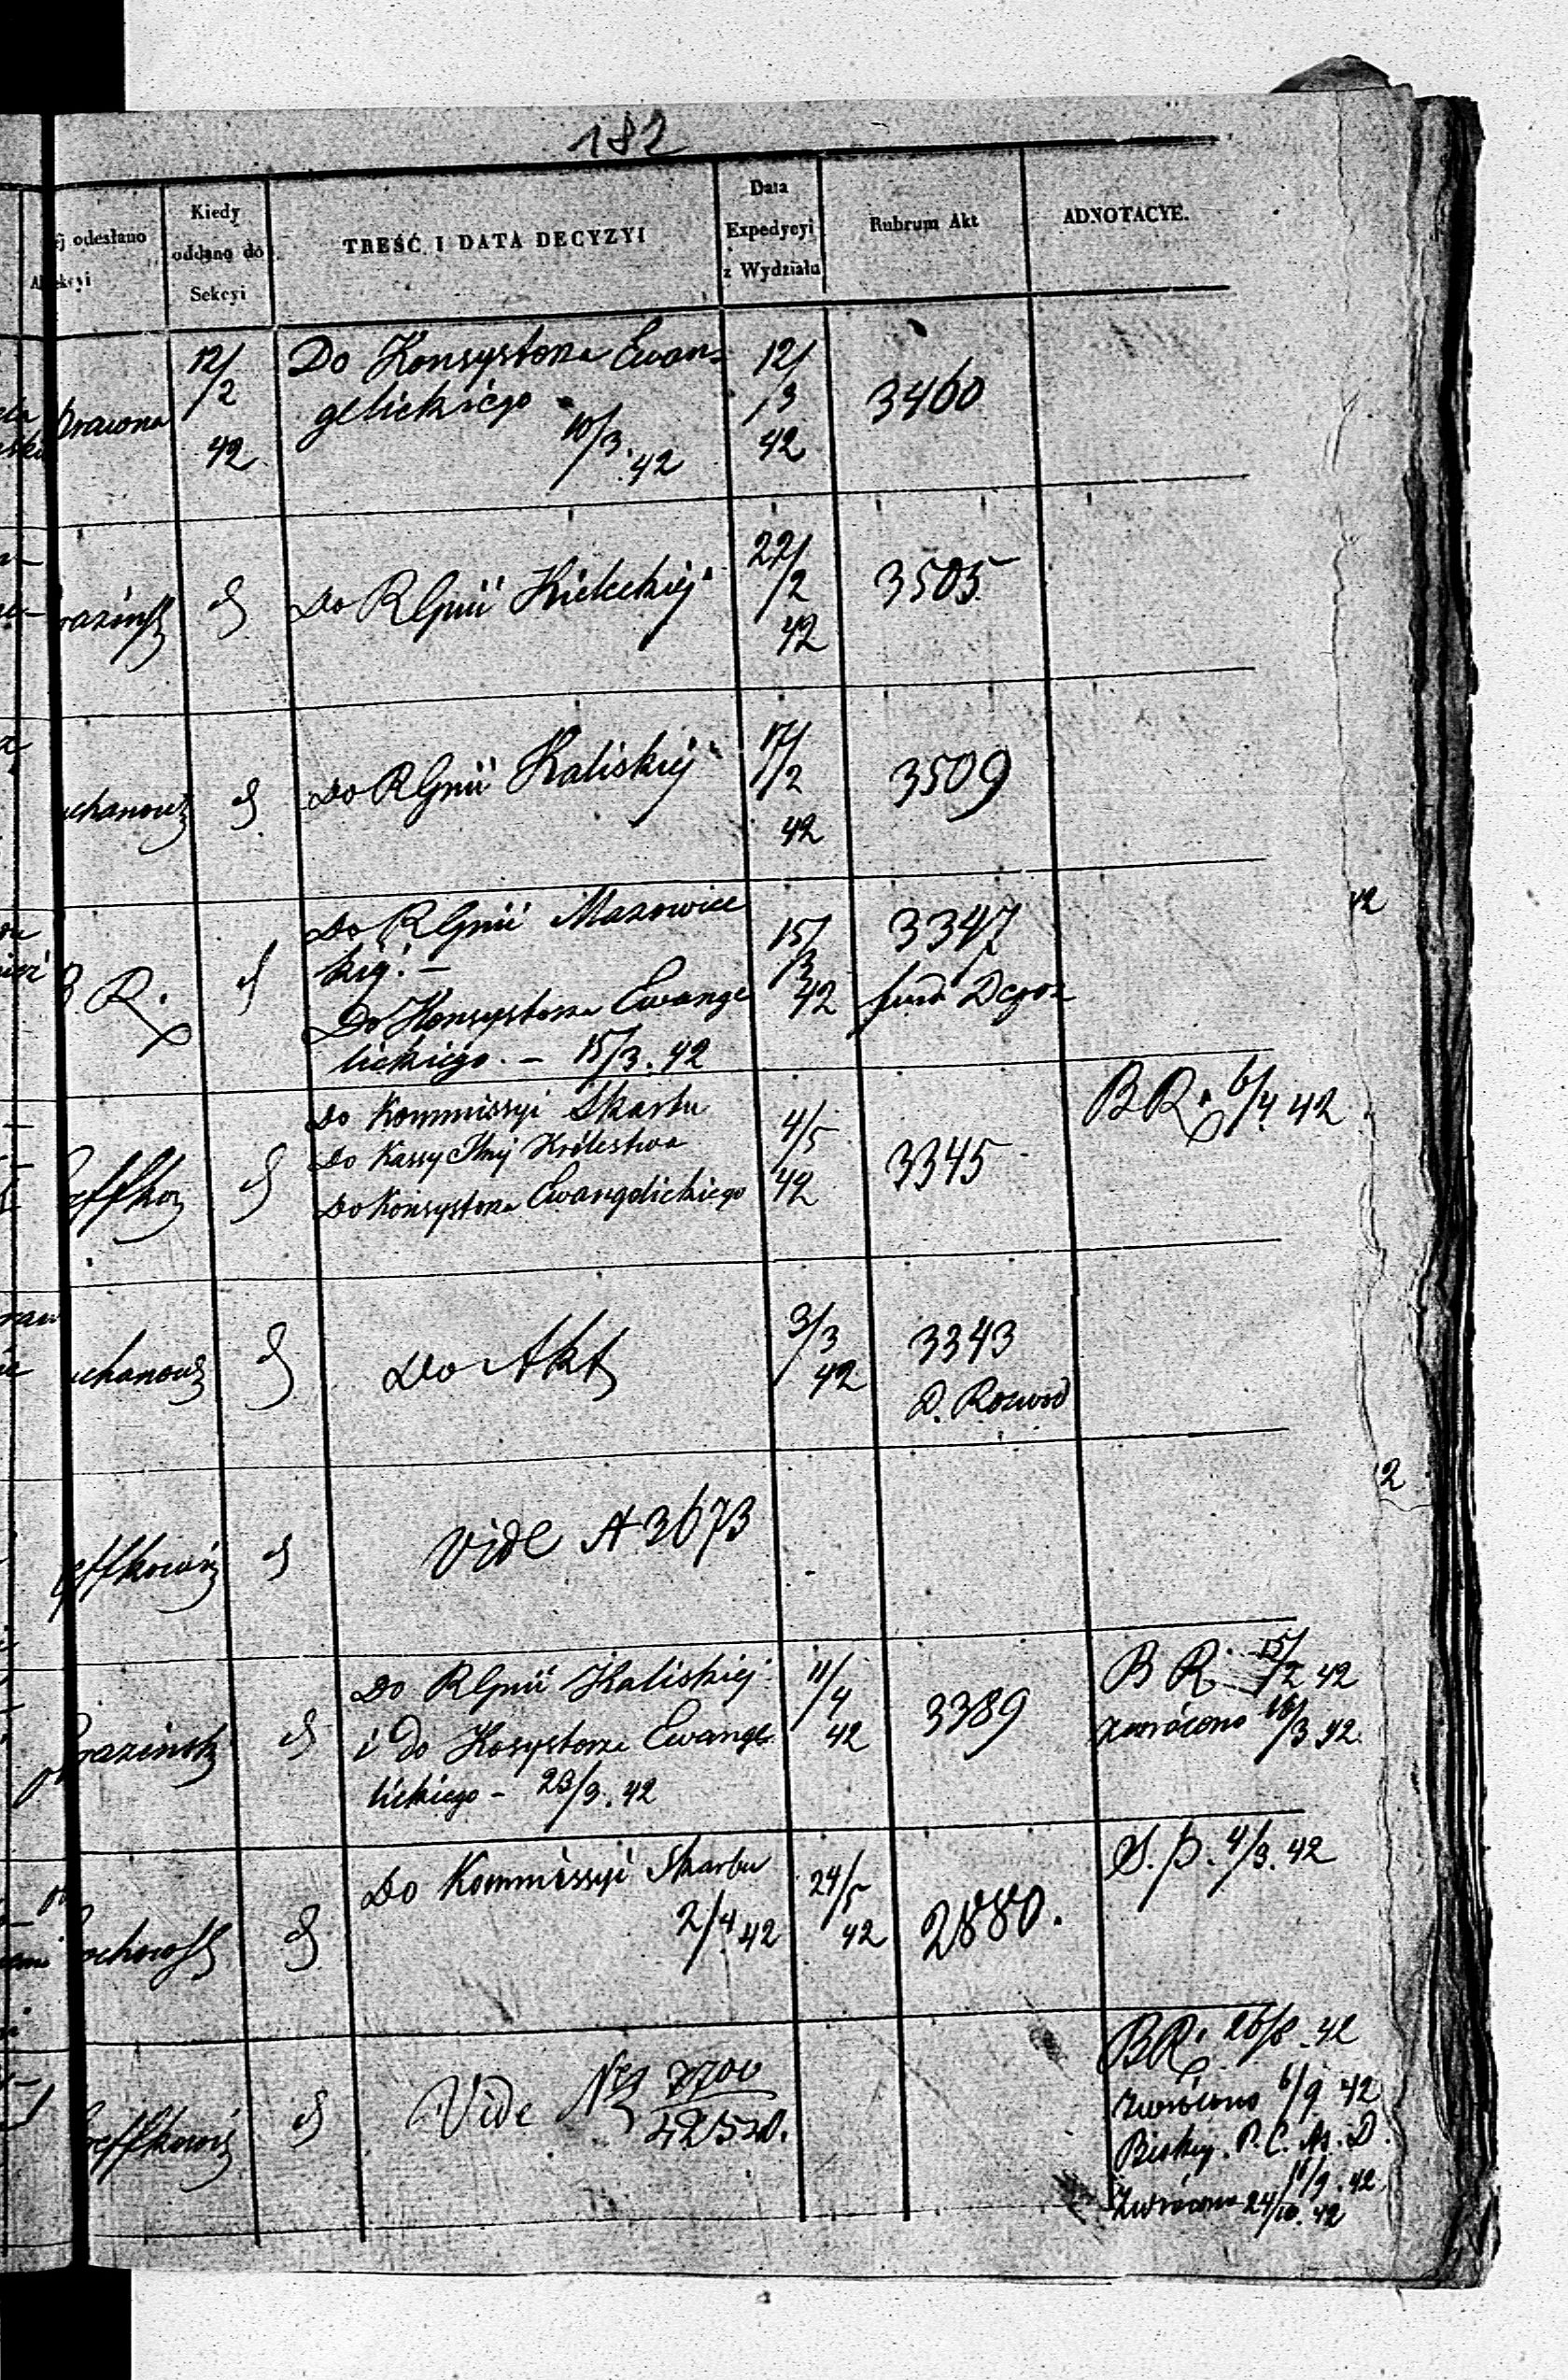 182
j odesłano
Kiedy
oddano do
Sekcyi
TREŚĆ I DATA DECYZYI
Data
Expedycyi
z Wydziału
Rubrum Akt
ADNOTACYE.
12/2 42
Do Konsystorza Ewan-
gelickiego
10/3. 42
12/3 42
3460
d
Do RGnii Kieleckiej
22/2 42
3505
uchanows
d
Do RGnii Kaliskiej
17/2 42
3509
B. R.
d
Do RGnii Mazowiec
kiej. –
Do Konsystorza Ewange
lickiego. – 15/3. 42
15/3 42
3347
d
Do Kommissyi Skarbu
Do Kassy Głnej Królestwa
Do Konsystorza Ewangelickiego
4/5 42
3345
BR. 6/4 42
uchanows
d
Do Akt
3/3 42
3343
D. Rozwod
effkowicz
d
Vide A 3673
razinsk
d
Do RGnii Kaliskiej
i Do Kosystorza Ewange
lickiego – 23/3. 42
11/4 42
3389
B R. 15/2 42
zwrócono 16/3 42.
ochowsk
d
Do Kommissyi Skarbu
2/4 42
24/5 42
2880.
S. P. 4/3. 42
effkowicz
d
Vide
BR. 26/8. 42
zwrócono 6/9 42
P. C.
zwrócono 24/10. 42